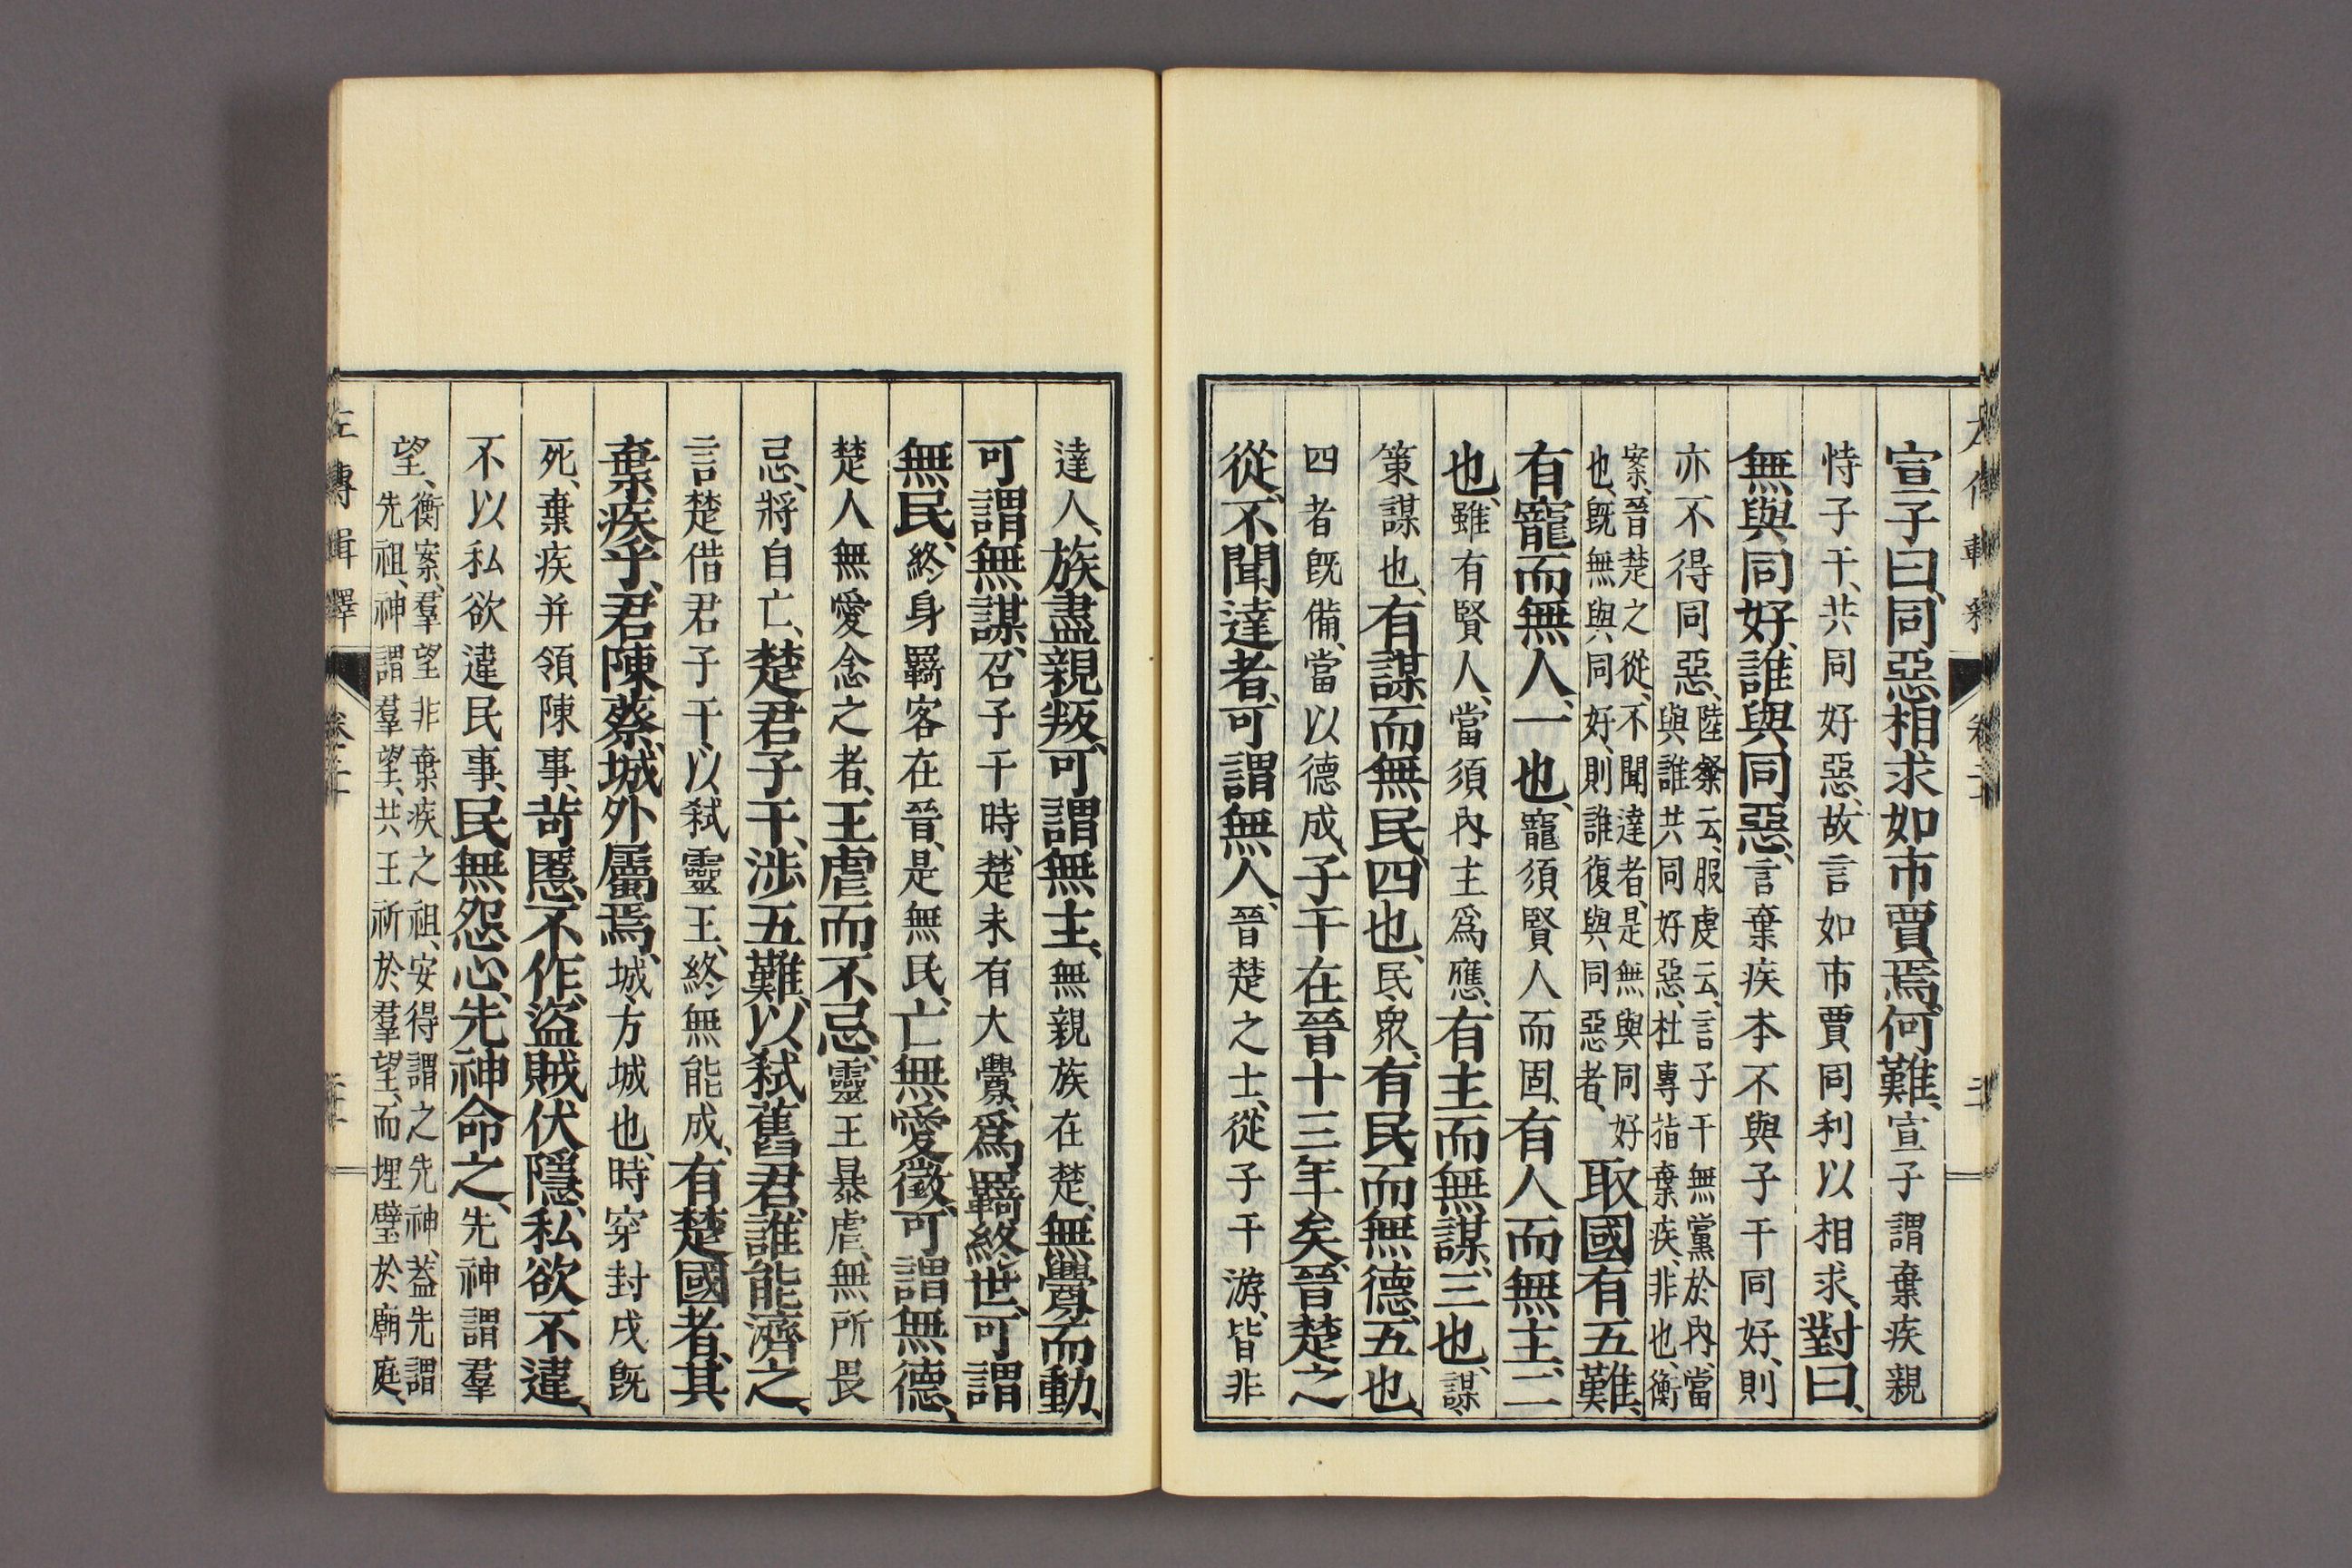 宣子曰、同惡相求、如市賈焉、何難、宣子謂棄疾親
恃子干、共同好惡、故言如市賈同利以相求、對曰、
無與同好、誰與同惡、言棄疾本不與子干同好、則
亦不得同惡、陸粲云、服虔云、言子干無黨於內、當
與誰共同好惡、杜專指棄疾、非也、衡
案、晉楚之從、不聞達者、是無與同好
也、既無與同好、則誰復與同惡者、取國有五難、
有寵而無人、一也、寵須賢人而固、有人而無主、二
也、雖有賢人、當須內主爲應、有主而無謀、三也、謀、
策謀也、有謀而無民、四也、民、衆、有民而無德、五也、
四者既備、當以德成、子干在晉十三年矣、晉楚之
從、不聞達者、可謂無人、晉楚之士、從子干游、皆非
達人、族盡親叛、可謂無主、無親族在楚、無釁而動、
可謂無謀、召子干時、楚未有大釁、爲羇終世、可謂
無民、終身羇客在晉、是無民、亡無愛徵、可謂無德、
楚人無愛念之者、王虐而不忌、靈王暴虐、無所畏
忌、將自亡、楚君子干、涉五難、以弑舊君、誰能濟之、
言楚借君子干、以弑靈王、終無能成、有楚國者、其
棄疾乎、君陳蔡、城外屬焉、城、方城也、時穿封戌既
死、棄疾并領陳事、苛慝不作、盜賊伏隱、私欲不違、
不以私欲違民事、民無怨心、先神命之、先神謂羣
望、衡案、羣望非棄疾之祖、安得謂之先神、蓋先謂
先祖、神謂羣望、共王祈於羣望、而埋璧於廟庭、
左傳輯釋